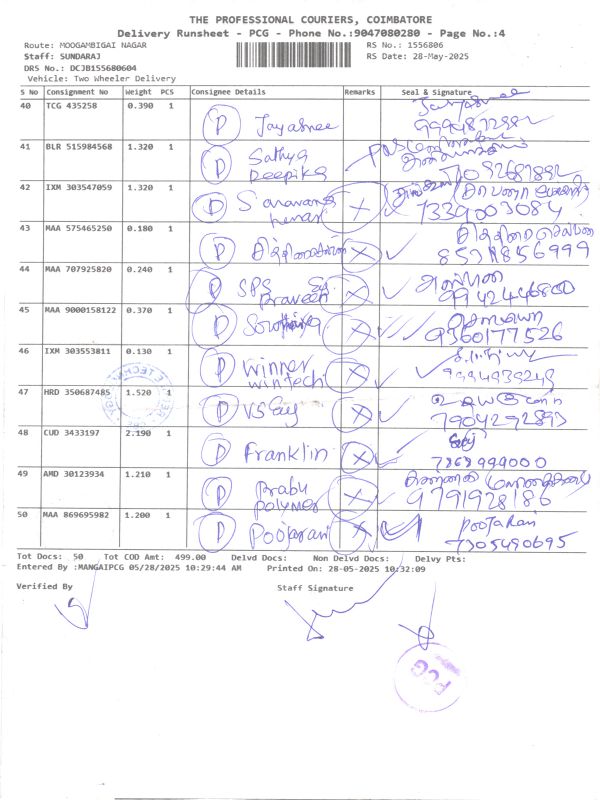 THE PROFESSIONAL COURIERS, COIMBATORE
Delivery Runsheet - PCG - Phone No.:9047080280 - Page No.:4
Route: MOOGAMBIGAI NAGAR RS No.: 1556806
Staff: SUNDARAJ RS Date: 28-May-2025
DRS No.: DCJB155680604
Vehicle: Two Wheeler Delivery
S No Consignment No Weight PCS Consignee Details Remarks Seal & Signature
40 TCG 435258 0.390 1 D Jayashree
41 BLR 515984568 1.320 1 D Sathya Deepika
42 IXM 303547059 1.320 1 D Saravana kumar X 7339003084
43 MAA 575465250 0.180 1 D X 8571856999
44 MAA 707925820 0.240 1 D SPS Praveen X 9942446800
45 MAA 9000158122 0.370 1 D X 9360177526
46 IXM 303553811 0.130 1 D Winner wintech X
47 HRD 350687485 1.520 1 D X 7904292893
48 CUD 3433197 2.190 1 D Franklin X 7868999000
49 AMD 30123934 1.210 1 D Prabu polymer X 9791928186
50 MAA 869695982 1.200 1 D Poojarani X PooJaRani
7305490695
Tot Docs: 50 Tot COD Amt: 499.00 Delvd Docs: Non Delvd Docs: Delvy Pts:
Entered By :MANGAIPCG 05/28/2025 10:29:44 AM Printed On: 28-05-2025 10:32:09
Verified By Staff Signature
PCG